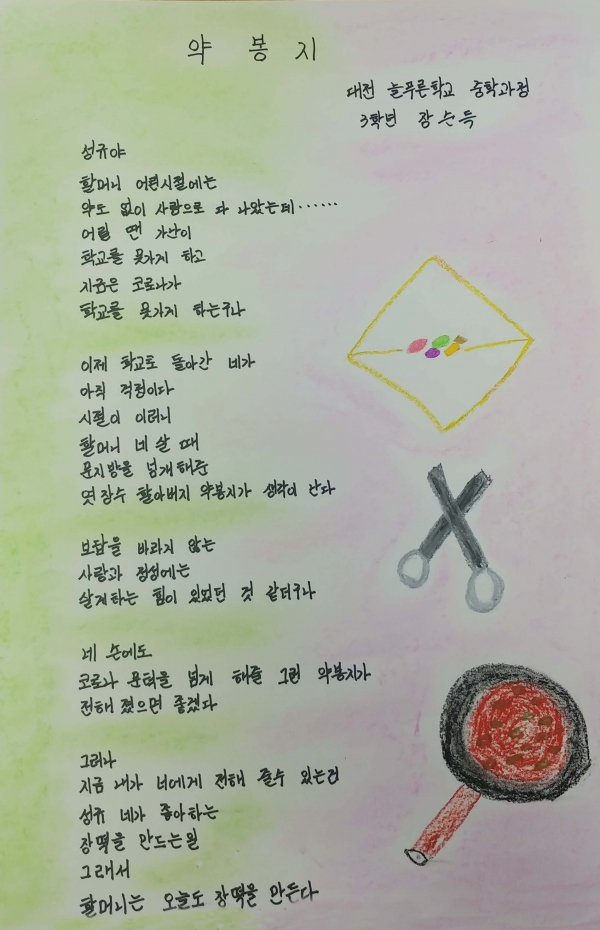 약 봉 지
대전 늘푸른학교 중학과정
3학년 장순득
성규야
할머니 어린시절에는
약도 없이 사랑으로 다 나았는데······
어릴 땐 가난이
학교를 못가게 하고
지금은 코로나가
학교를 못가게 하는구나
이제 학교로 돌아간 네가
아직 걱정이다
시절이 이러니
할머니 네 살 때
문지방을 넘게해준
엿장수 할아버지 약봉지가 생각이 난다
보답을 바라지 않는
사랑과 정성에는
살게하는 힘이 있었던 것 같더구나
네 손에도
코로나 문턱을 넘게 해줄 그런 약봉지가
전해 졌으면 좋겠다
그러나
지금 내가 너에게 전해 줄수 있는건
성규 네가 좋아하는
장떡을 만드는일
그래서
할머니는 오늘도 장떡을 만든다